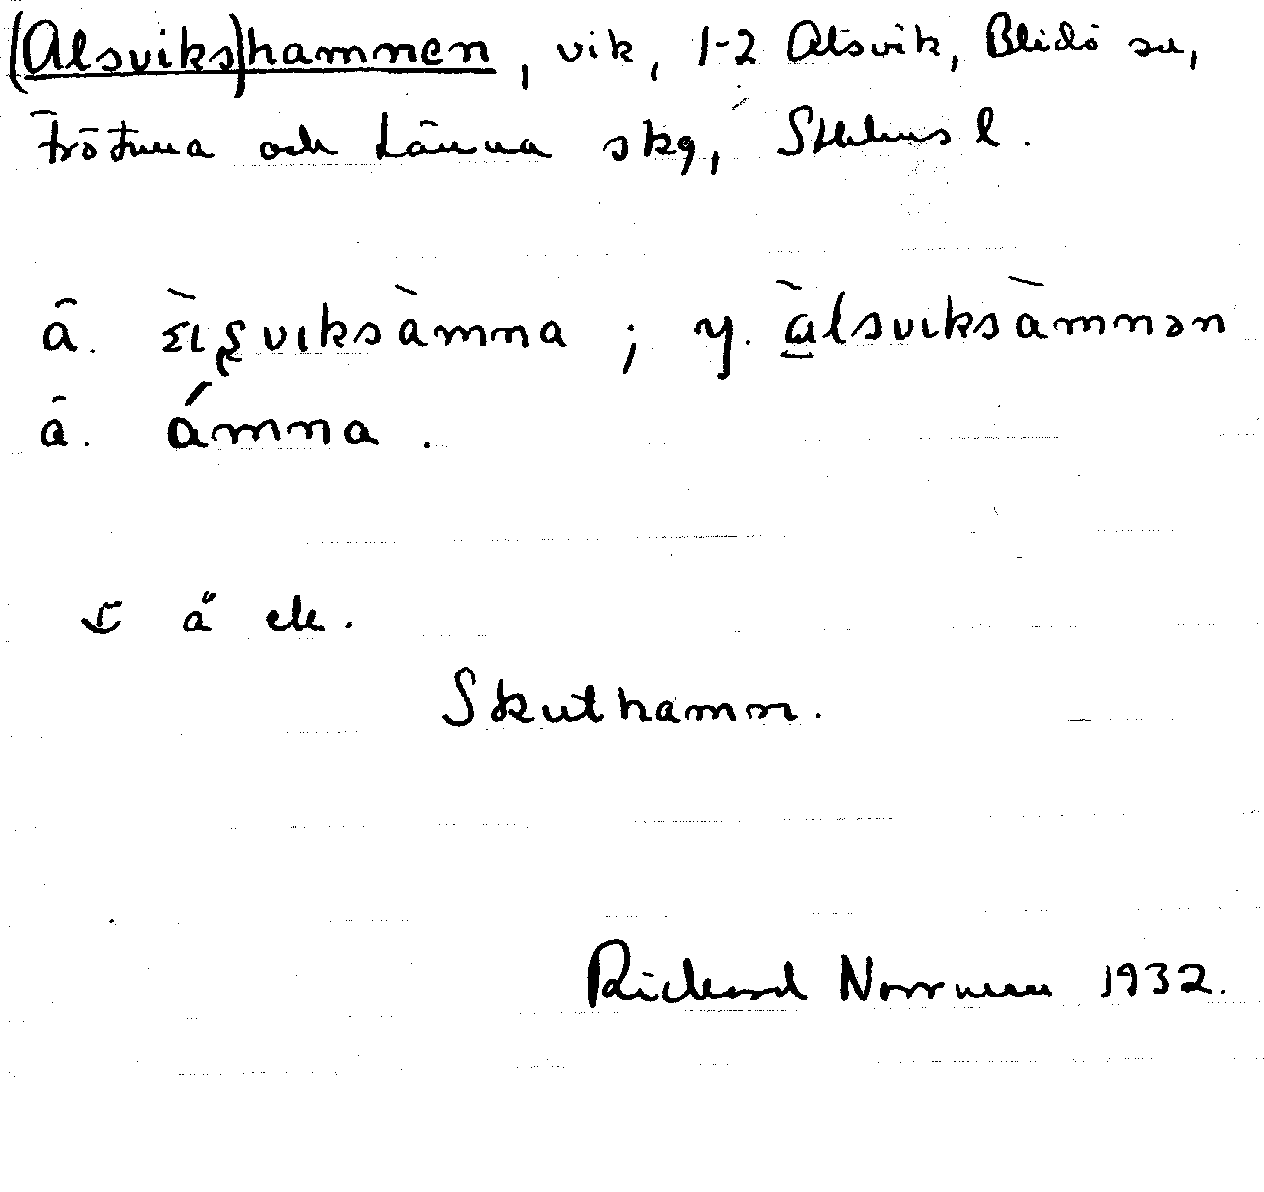 (Alsviks)hammen, vik, 1-2 Alsvik, Blidö sn,
Frötuna och Länna skg, Sthlms l.
ä. viksàmna ; y. àlsviksàmnən
ä. ámna .
etc.
Skuthamn.
Rickard Norrman 1932.